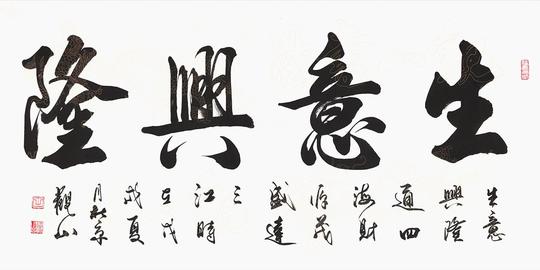 生意興隆
生意
興隆
通四
海財
源茂
盛達
三
江時
在戊
戌夏
月京
觀山